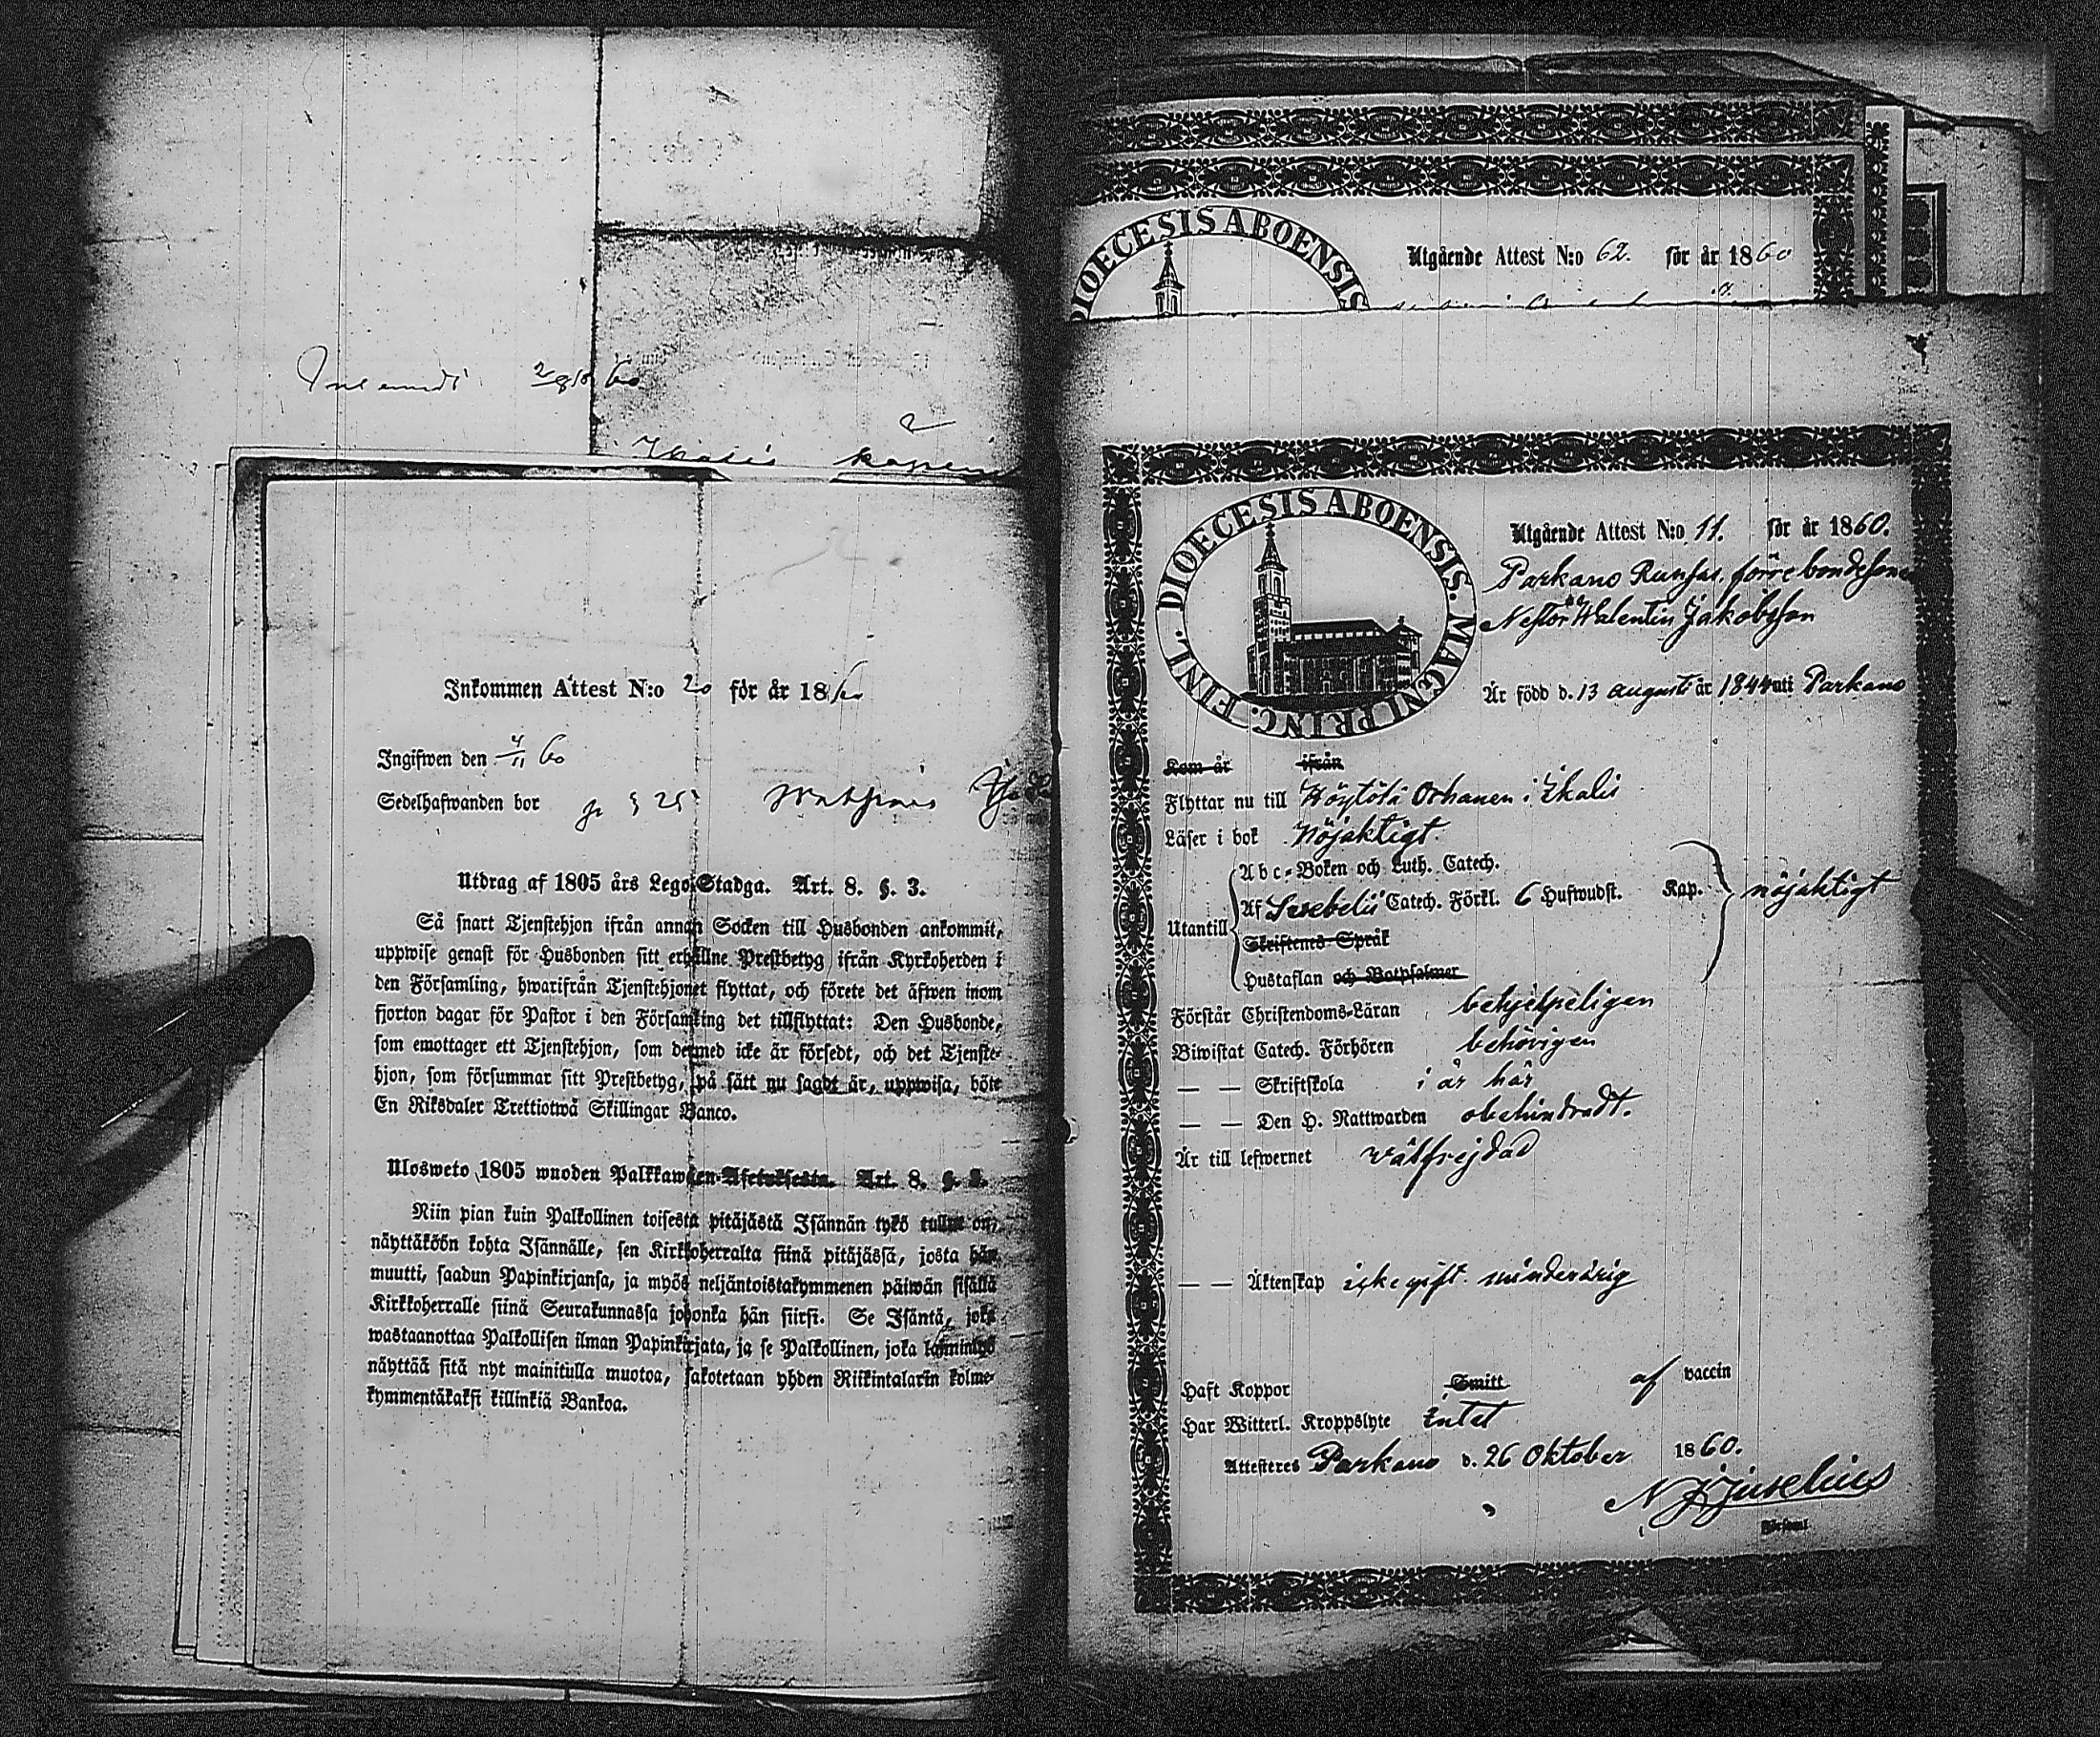 Inkommen Attest N:o 20 för år 1860
Ingifwen den 4/11 60
Sedelhafwanden bor
Utdrag af 1805 års Lego-Stadga. Art. 8. §. 3.
Så snart Tjenstehjon ifrån annan Socken till Husbonden ankommit,
uppwise genast för Husbonden sitt erhållne Prestbetyg ifrån Kyrkoherden i
den Församling, hwarifrån Tjenstehjonet flyttat, och förete det äfwen inom
fjorton dagar för Pastor i den Församling det tillflyttat: Den Husbonde,
som emottager ett Tjenstehjon, som dermed icke är försedt, och det Tjenste-
hjon, som försummar sitt Prestbetyg, på sätt nu sagdt är, uppwisa, böte
En Riksdaler Trettiotwå Skillingar Banco.
Ulosweto 1805 wuoden Palkkawäen-Asetuksesta. Art. 8. §. 3.
Niin pian kuin Palkollinen toisesta pitäjästä Isännän tykö tullut on,
näyttäköön kohta Isännälle, sen Kirkkoherralta siinä pitäjässä, josta hän
muutti, saadun Papinkirjansa, ja myös neljäntoistakymmenen päiwän sisällä
Kirkkoherralle siinä Seurakunnassa johonka hän siirsi. Se Isäntä, joka
wastaanottaa Palkollisen ilman Papinkirjata, ja se Palkollinen, joka laiminlyö
näyttää sitä nyt mainitulla muotoa, sakotetaan yhden Riikintalarin kolme-
kymmentäkaksi killinkiä Bankoa.
DIOECESIS ABOENSIS
Utgående Attest N:o 62. för år 1860
DIOECESIS ABOENSIS. MAGNI PRINC. FINL.
Utgående Attest N:o 11. för år 1860.
Parkano förre bondesonen
Nestor Walentin Jakobsson
Är född d. 13 augusti år 1844 uti Parkano
Kom år ifrån
Flyttar nu till Höytölä Orhanen i Ikalis
Läser i bok Nöjaktigt.
Utantill
Abc-Boken och Luth. Catech.
Af Svebelii Catech. Förkl. 6 Hufwudst. Kap. nöjaktigt
Skriftenes-Språk
Hustaflan och Botpsalmer
Förstår Christendoms-Läran behjelpeligen
Biwistat Catech. Förhören behörigen
— — Skriftskola i år här
— — Den H. Nattwarden obehindradt.
Är till lefwernet wälfrejdad
— — Äktenskap icke gift. minderårig
Haft Koppor Smitt af vaccin
Har Witterl. Kroppslyte Intet
Attesteres Parkano d. 26 Oktober 1860.
N J Juselius